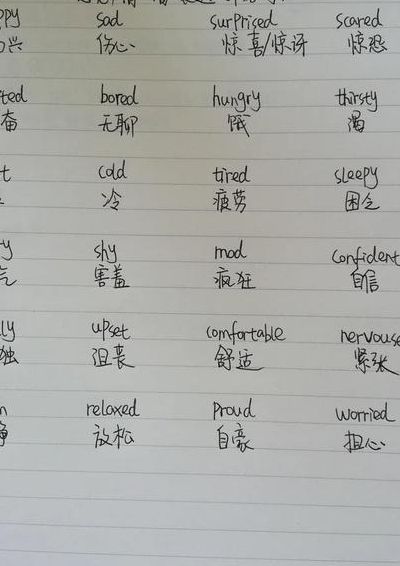 ppy sad surprised scared
兴 伤心 惊喜/惊讶 惊恐
ted bored hungry thirsty
奋 无聊 饿 渴
t cold tired sleepy
冷 疲劳 困乏
y shy mad confident
害羞 疯狂 自信
ly upset comfortable nervouse
独 沮丧 舒适 紧张
n relaxed proud worried
静 放松 自豪 担心